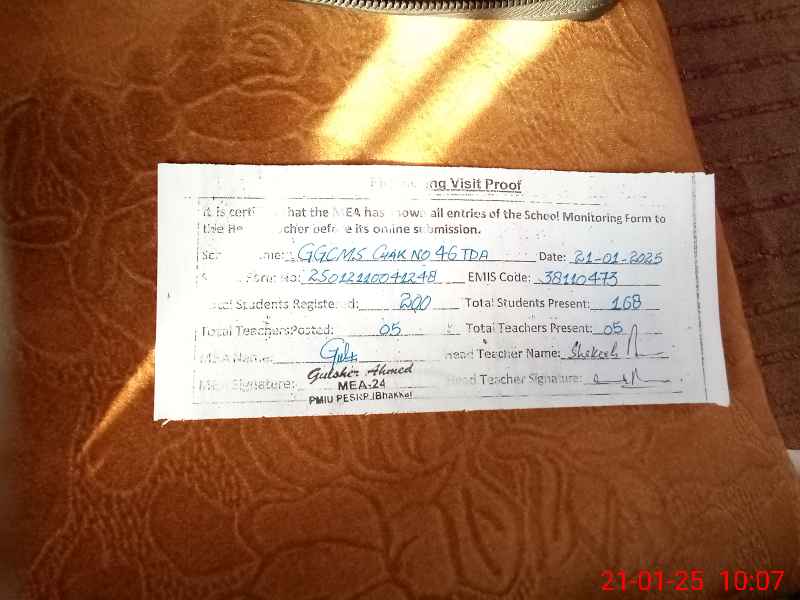 ng Visit Proof
It is certi hat the MEA has shown all entries of the School Monitoring Form to
the He cher before its online submission.
Sc me: GGCMS CHAK NO 46 TDA Date: 21-01-2025
Form No: 25012110041248 EMIS Code: 38110473
Total Students Registered: 200 Total Students Present: 168
Total Teachers Posted: 05 Total Teachers Present: 05
MEA Name: Head Teacher Name:
MEA Signature: Gulsher Ahmed Head Teacher Signature:
MEA-24
PMIU PESRP /Bhakkar
21-01-25 10:07